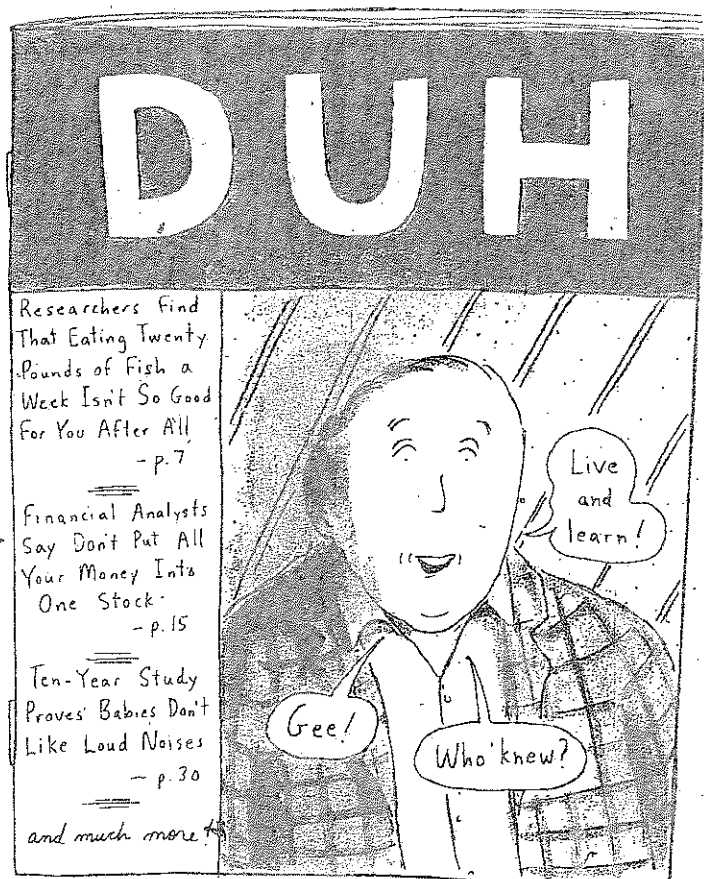 DUH
Researchers Find
That Eating Twenty
Pounds of Fish a
Week Isn't So Good
For You After All
- p. 7
Financial Analysts
Say Don't Put All
Your Money Into
One Stock
- p. 15
Ten-Year Study
Proves Babies Don't
Like Loud Noises
- p. 30
and much more!
Live
and
learn!
Gee!
Who knew?